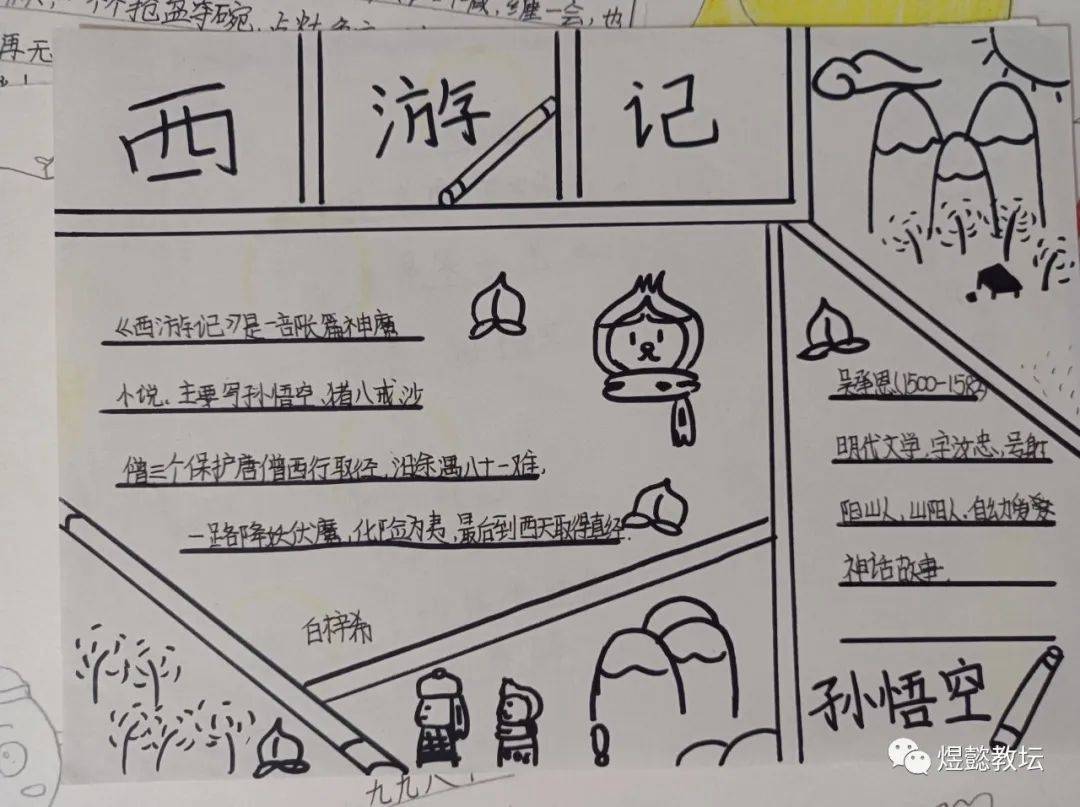 西游记
《西游记》是一部长篇神魔
小说。主要写孙悟空、猪八戒、沙
僧三个保护唐僧西行取经,沿途遇八十一难,
一路降妖伏魔,化险为夷,最后到西天取得真经.
白梓希
吴承恩(1500-1582)
明代文学,字汝忠,号射
阳山人,山阳人.自幼爱爱
神话故事.
孙悟空
九九八
煜懿教坛
抢盆夺碗
缠一会,也
再无